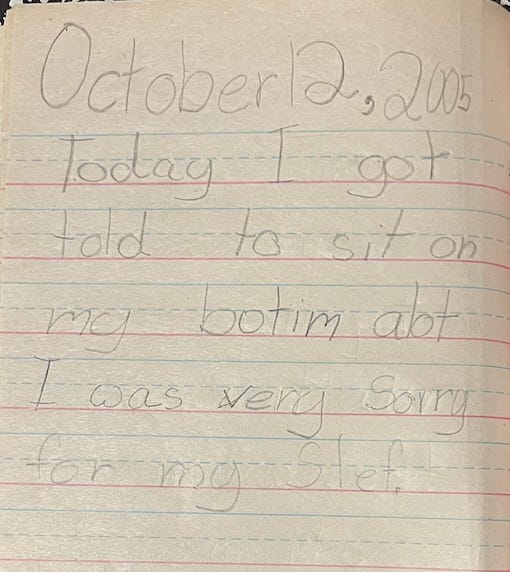 October 12, 2005
Today I got
told to sit on
my botim abt
I was very Sorry
for my Slef.